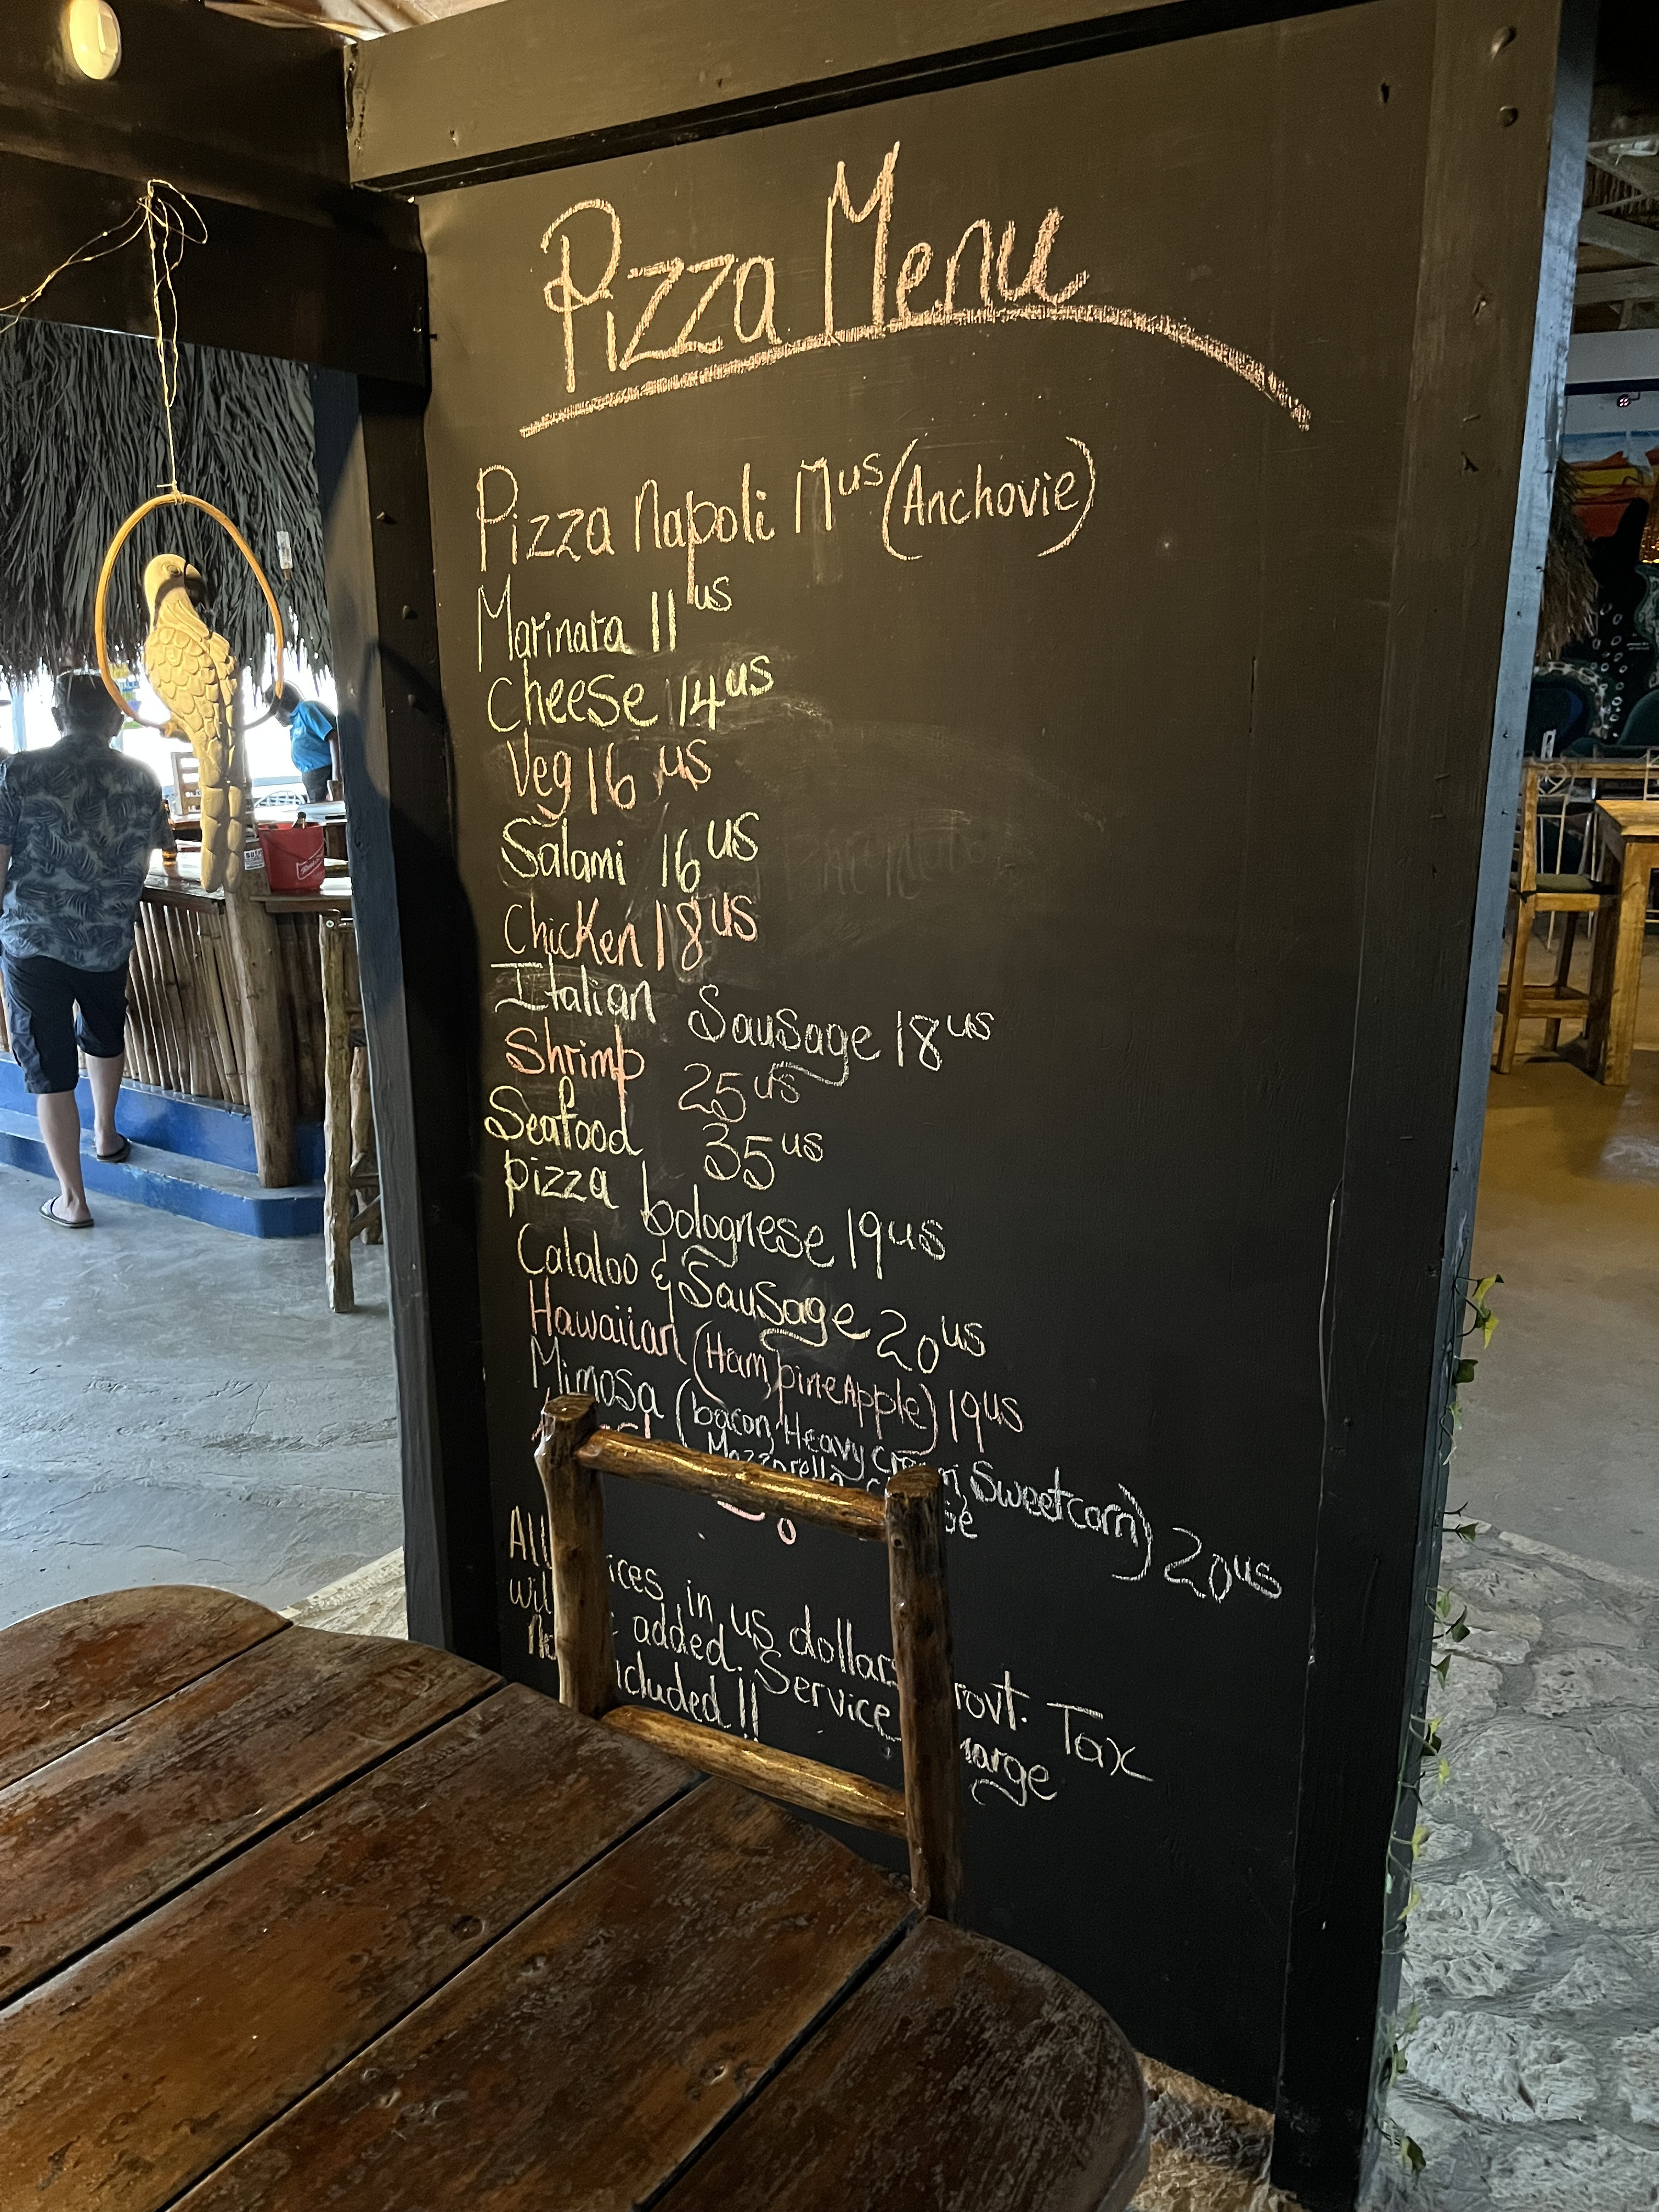 Pizza Menu
Pizza Napoli 17us (Anchovie)
Marinara 11us
Cheese 14us
Veg 16us
Salami 16us
Chicken 18us
Italian Sausage 18us
Shrimp 25us
Seafood 35us
Pizza bolognese 19us
Calaloo & Sausage 20us
Hawaiian (Ham, pineApple) 19us
Mimosa (bacon, Heavy cream, Sweetcorn) 20us
Mozzarella
All in us dollars Tax
added. Service
!!